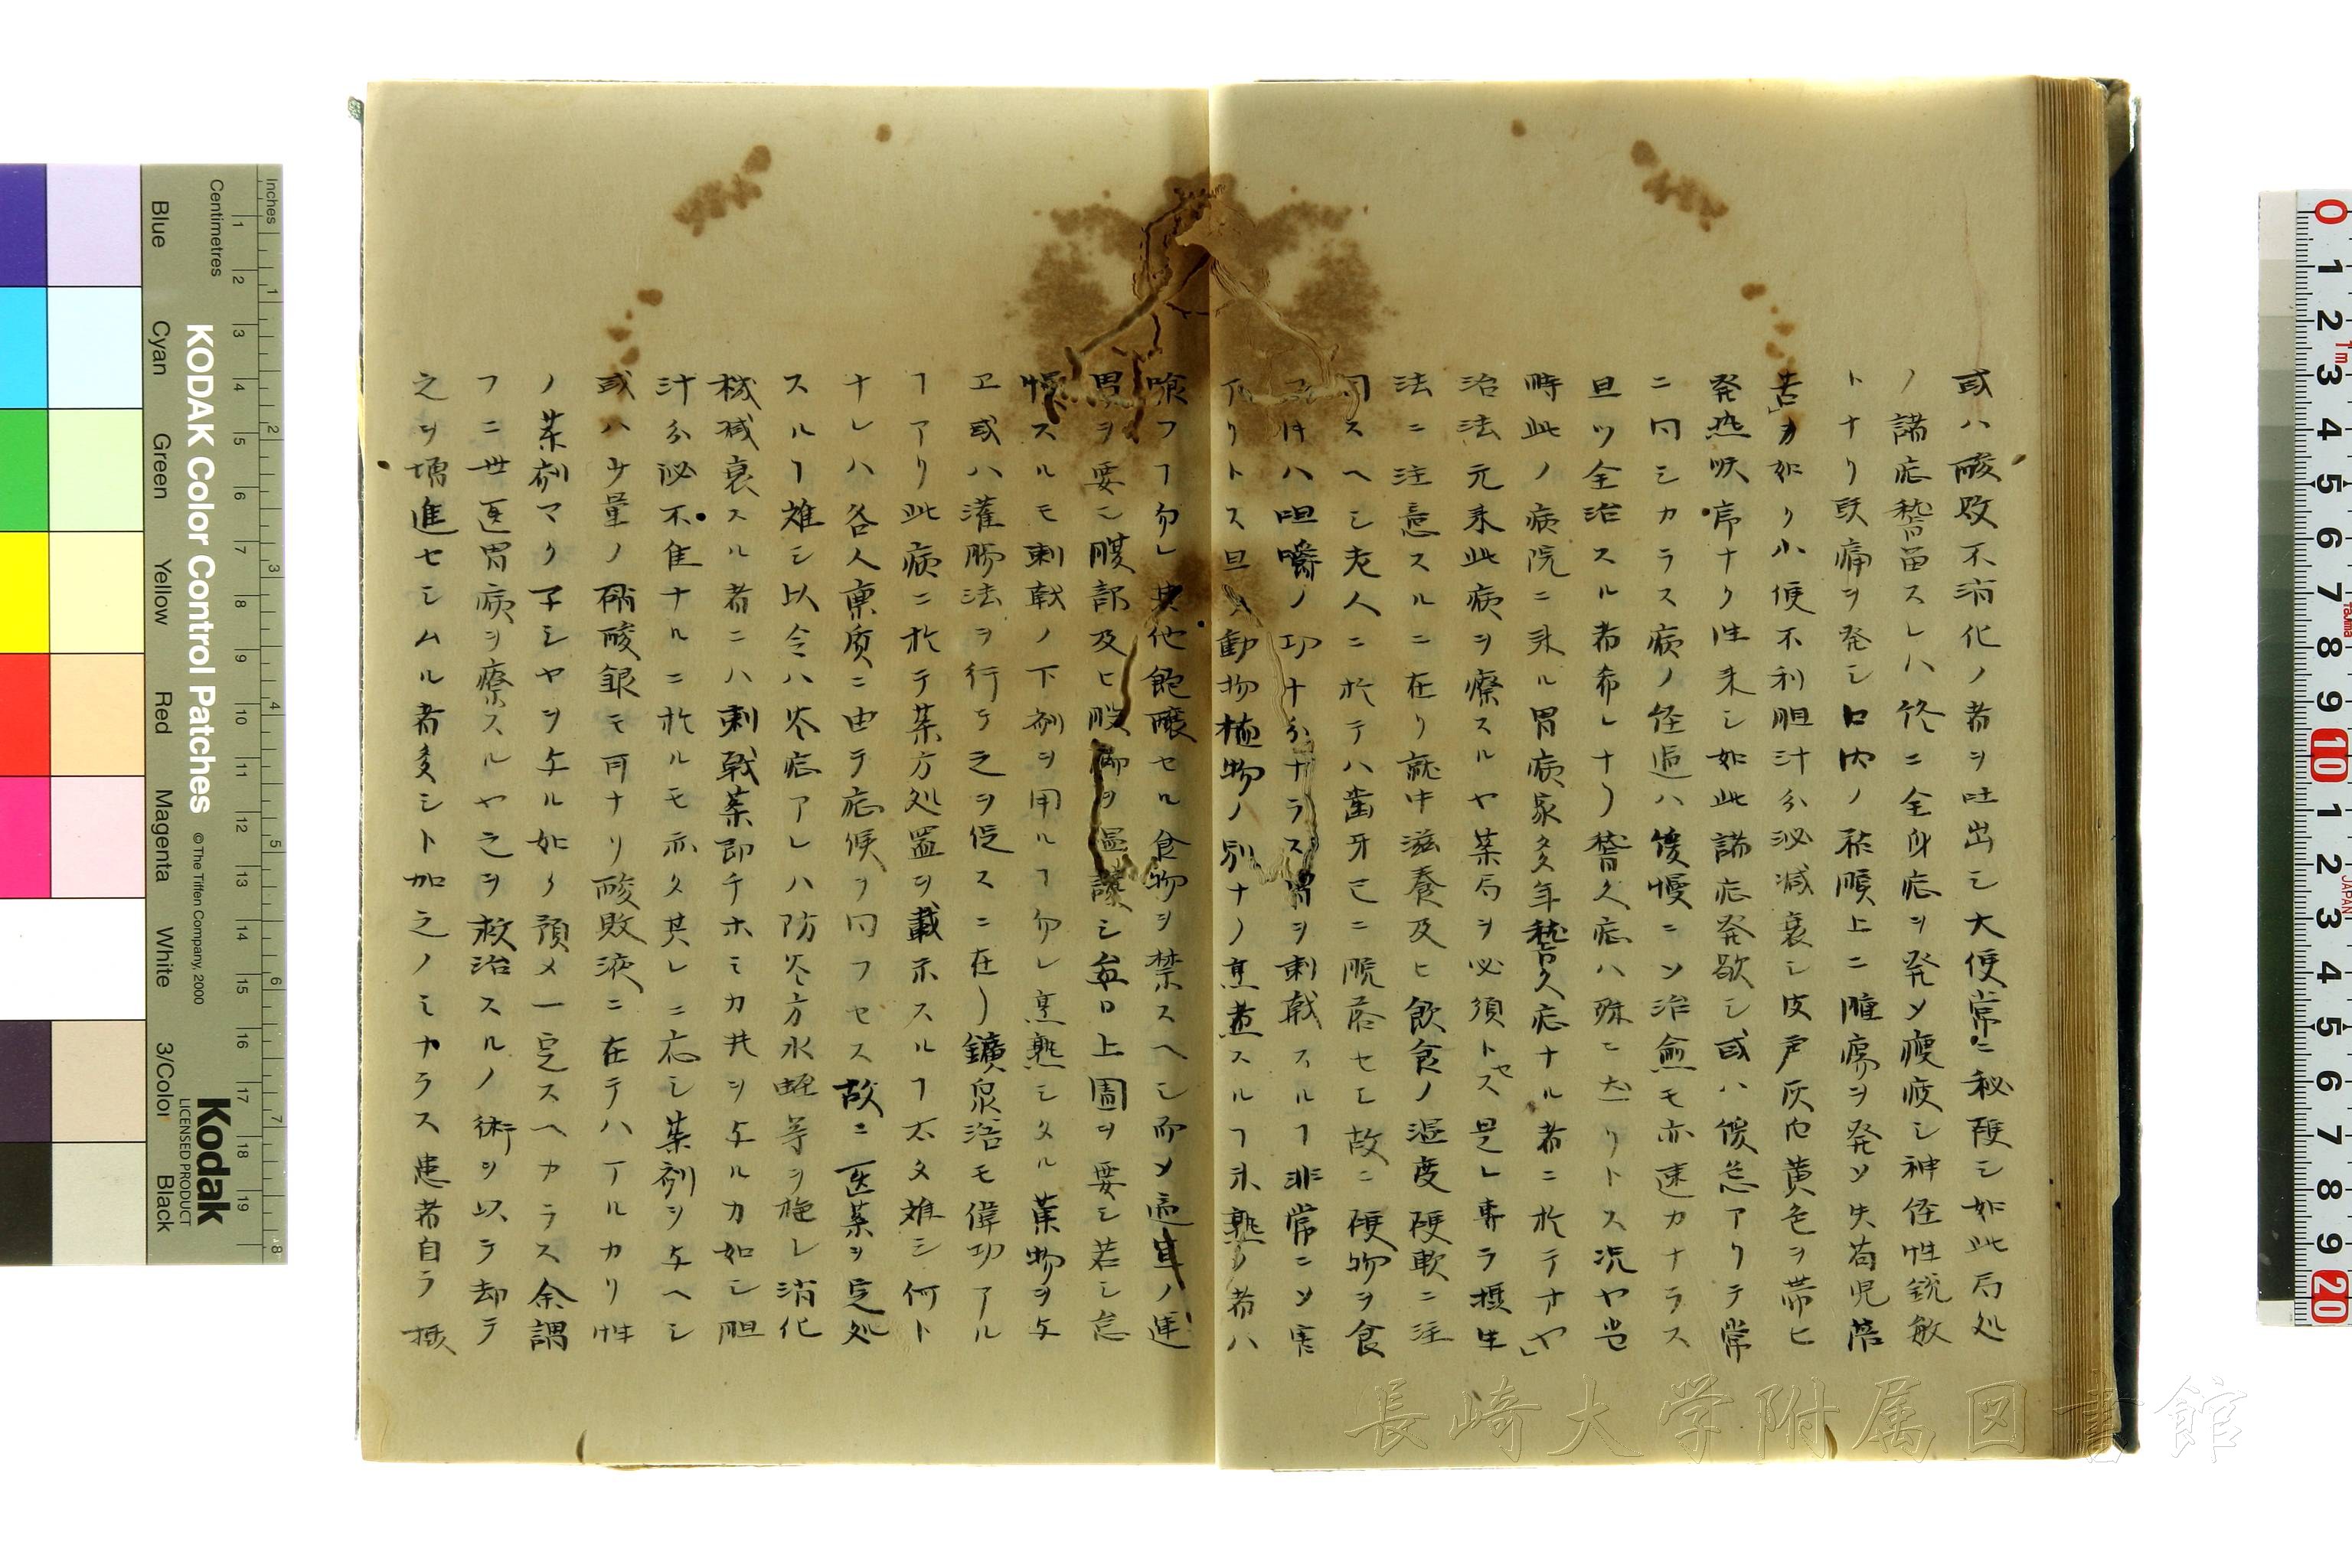 或ハ酸敗不消化ノ者ヲ吐出シ大便常ニ秘硬シ如此局処
ノ諸症稽留スレハ終ニ全身症ヲ発メ痩疲シ神経性鋭敏
トナリ頭痛ヲ発シ口内ノ粘膜上ニ腫瘍ヲ発ソ失苟児倍
苦」ノ如ク小便不利胆汁分泌减衰シ皮声灰白黄色ヲ帯ヒ
発熱吹席ナク往来シ如此諸症発歇シ或ハ緩怠アリテ常
ニ同シカラス病ノ経過ハ緩慢ニソ治愈モ亦速カナラス
且ツ全治スル者希レナリ稽久症ハ殊ニ太リトス况ヤ当
時此ノ病院ニ来ル胃病家多年稽久症ナル者ニ於テオヤ」
治法元来此病ヲ療スルヤ薬局ヲ必須トセス是レ専ラ摂生
法ニ注意スルニ在リ就中滋養及ヒ飲食ノ温度硬軟ニ注
同スヘシ老人ニ於テハ歯牙已ニ脱落セモ故ニ硬物ヲ食
ハ咀嚼ノ功十分ナラス胃ヲ刺戟スルヿ非常ニソ害
アリトス且又動物植物ノ別ナク烹煮スルヿ未熟ノ者ハ
喰フヿ勿レ其他飽醸セル食物ヲ禁スヘシ而メ適宜ノ運
男ヲ要シ腹部及ヒ股脚ヲ温護シ毎日上圊ヲ要シ若シ怠
慢スルモ刺戟ノ下剤ヲ用ルヿ勿レ烹熟シタル菓物ヲ与
ヱ或ハ灌腸法ヲ行テ之ヲ促スニ在リ鑛泉浴モ偉功アル
ヿアリ此病ニ於テ薬方処置ヲ載示スルヿ太タ难シ何ト
ナレハ各人稟質ニ由テ症候ヲ同フセス故ニ医薬ヲ定処
スルヿ难シ以令ハ炎症アレハ防炎方水蛭等ヲ施レ消化
機减衰スル者ニハ刺戟薬即チホミカ丼ヲ与ルカ如シ胆
汁分泌不隹ナルニ於ルモ亦タ其レニ応シ薬剤ヲ与ヘシ
或ハ少量ノ硝酸銀モ可ナリ酸敗液ニ在テハアルカリ性
ノ薬剤マク子シヤヲ与ル如ク預メ一定スヘカラス余謂
フニ世医胃病ヲ療スルヤ之ヲ救治スルノ術ヲ以ラ却テ
之ヲ増進セシムル者多シト加之ノミナラス患者自ラ摂
Inches
Centimetres
KODAK Color Control Patches
© The Tiffen Company, 2000
Kodak
LICENSED PRODUCT
Blue
Cyan
Green
Yellow
Red
Magenta
White
3/Color
Black
長崎大学附属図書館